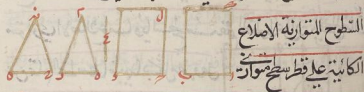 السطوح المتوازية الاضلاع
الكائنة على قطر سطح متوازى